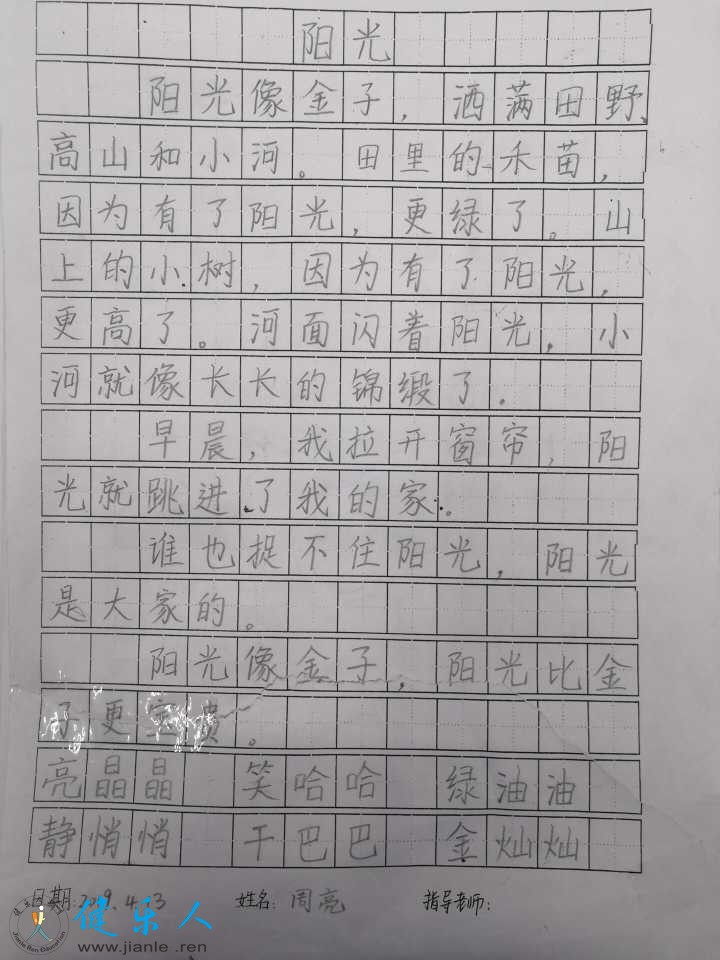 阳光
阳光像金子，洒满田野、
高山和小河。田里的禾苗，
因为有了阳光，更绿了。山
上的小树，因为有了阳光，
更高了。河面闪着阳光，小
河就像长长的锦缎了．
早晨，我拉开窗帘，阳
光就跳进了我的家。
谁也捉不住阳光，阳光
是大家的。
阳光像金子，阳光比金
子更宝贵。
亮晶晶 笑哈哈 绿油油
静悄悄 干巴巴 金灿灿
日期:2019.4.13 姓名:周亮 指导老师:
健乐人
www.jianle.ren